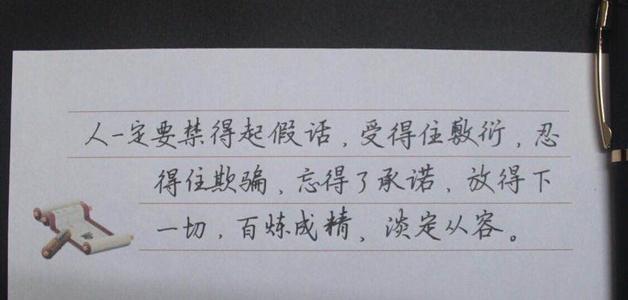 人一定要禁得起假话，受得住敷衍，忍
得住欺骗，忘得了承诺，放得下
一切，百炼成精，淡定从容。